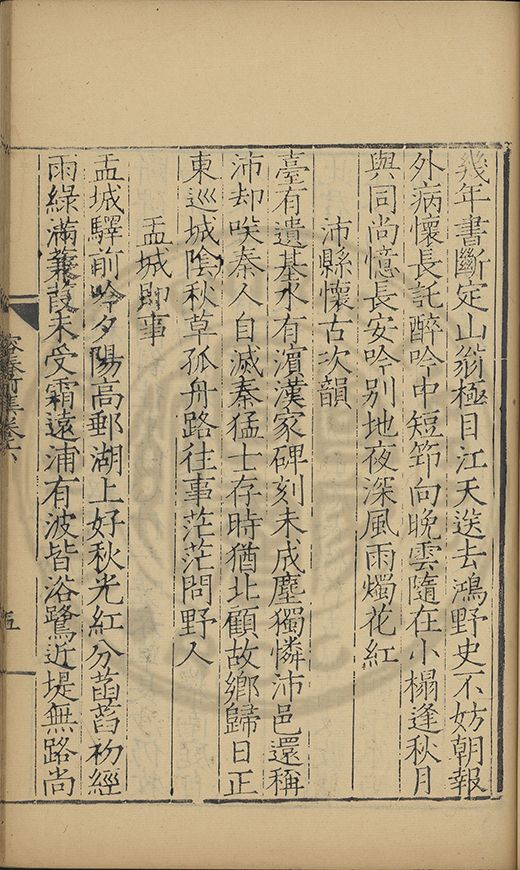 幾年書斷定山翁極目江天送去鴻野史不妨朝報
外病懷長託醉吟中短筇向晚雲隨在小榻逢秋月
與同尚憶長安吟別地夜深風雨燭花紅
沛縣懷古次韻
臺有遺基水有濵漢家碑刻未成塵獨憐沛邑還稱
沛却唉秦人自滅秦猛士存時猶北顧故鄉歸日正
東巡城陰秋草孤舟路往事茫茫問野人
盂城即事
盂城驛前吟夕陽高郵湖上好秋光紅分菡萏初經
雨綠滿蒹葭未受霜遠浦有波皆浴鷺近堤無路尚
容春堂集卷六
五